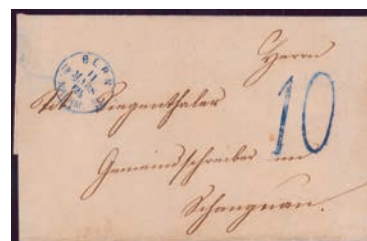 BERN
11
MARS
Herrn
Siegenthaler
10
Gemeindschreiber
Schangnau.